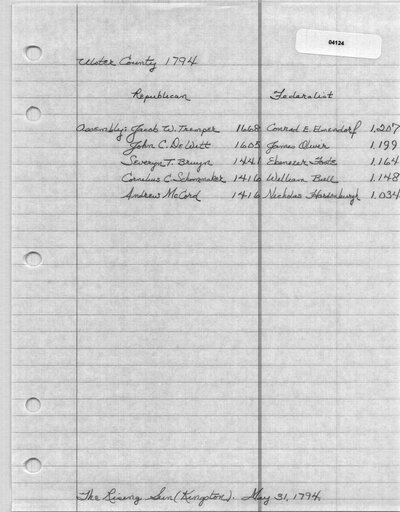 04124
Ulster County 1794
Republican Federalist
Assembly: Jacob W. Tremper 1668 Conrad E. Elmendorf 1,207
John C. DeWitt 1605 James Oliver 1,199
Severyn T. Bruyn 1441 Ebenezer Foote 1,164
Cornelius C. Schoonmaker 1416 William Bull 1,148
Andrew McCord 1416 Nicholas Hardenburgh 1,034
The Rising Sun (Kingston). May 31, 1794.